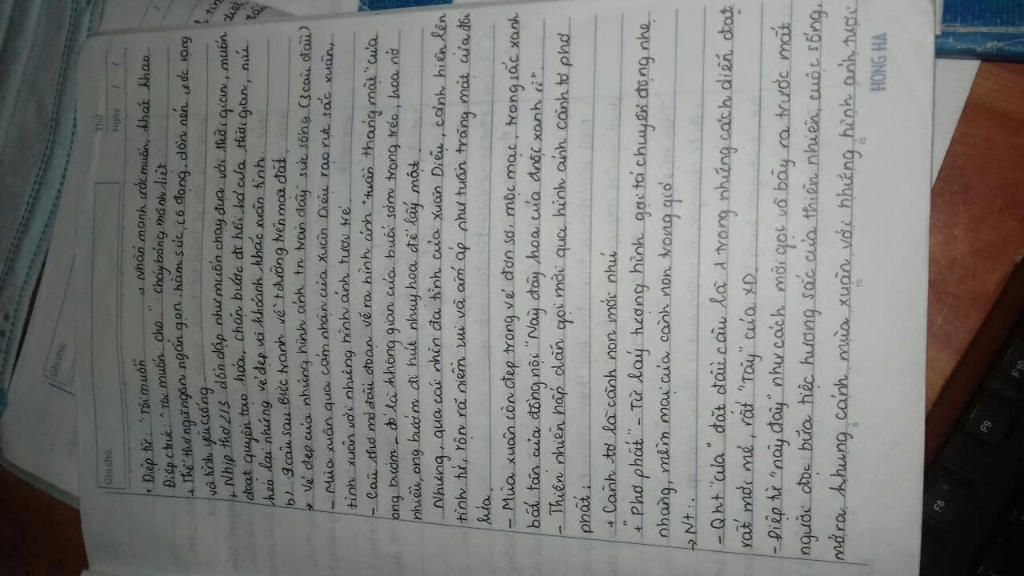 Ghi chú:
Thứ
Ngày / /
+ Điệp từ: "Tôi muốn → Nhấn mạnh ước muốn, khát khao
Điệp cấu trúc: "Tôi muốn cho" cháy bỏng mãnh liệt
→ Thể thơ ngũ ngôn ngắn gọn, hàm súc, cô đọng, dồn nén ước vọng
và tình yêu cuồng
+ Nhịp thơ 2/3 dồn dập như muốn chạy đua với thời gian, muốn
đoạt quyền tạo hóa, chặn bước đi hối hả của thời gian, níu
kéo lại những vẻ đẹp và khoảnh khắc xuân tình.
b) 9 câu sau: Bức tranh về thiên đường trên mặt đất
* Vẻ đẹp của những hình ảnh tn tràn đầy sức sống (5 câu đầu)
- Mùa xuân qua cảm nhận của Xuân Diệu rạo rực sắc xuân,
tình xuân với những hình ảnh tươi trẻ
- Câu thơ mở đầu đoạn vẽ ra hình ảnh "tuần tháng mật" của
ong bướm - đó là không gian của buổi sớm trong trẻo, hoa nở
nhiều, ong bướm đi hút nhụy hoa để lấy mật.
- Nhưng, qua cái nhìn đa tình của Xuân Diệu, cảnh hiện lên
tình tứ, rộn rã niềm vui và ấm áp như tuần trăng mật của đôi
lứa
- Mùa xuân còn đẹp trong vẻ đơn sơ, mộc mạc, trong sắc xanh
bất tận của đồng nội "Này đây hoa của đồng nội xanh rì"
- Thiên nhiên hấp dẫn gọi mời qua hình ảnh cành tơ phơ
phất:
+ Cành tơ là cành non mới nhú
+ "Phơ phất" - Từ láy tượng hình gợi tả chuyển động nhẹ
nhàng, mềm mại của cành non trong gió.
→ NT:
- Qht "của" đặt đầu câu là 1 trong những cách diễn đạt
rất mới mẻ, rất "Tây" của XD
- Điệp từ "này đây" như cách mời gọi và bày ra trước mắt
người đọc bữa tiệc hương sắc của thiên nhiên, cuộc sống,
mở ra khung cảnh mùa xuân với những hình ảnh tươi
HONG HA
Ghi chú:
F9
F8